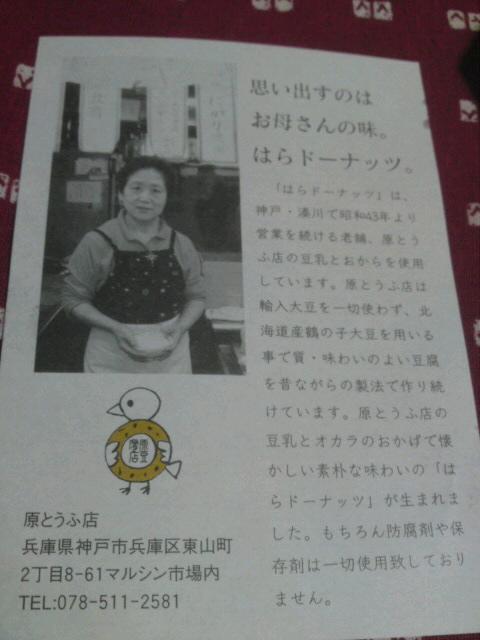 思い出すのは
お母さんの味。
はらドーナッツ。
「はらドーナッツ」は、
神戸・湊川で昭和43年より
営業を続ける老舗、原とう
ふ店の豆乳とおからを使用
しています。原とうふ店は
輸入大豆を一切使わず、北
海道産鶴の子大豆を用いる
事で質・味わいのよい豆腐
を昔ながらの製法で作り続
けています。原とうふ店の
豆乳とオカラのおかげで懐
かしい素朴な味わいの「は
らドーナッツ」が生まれま
した。もちろん防腐剤や保
存剤は一切使用致しており
ません。
原とうふ店
兵庫県神戸市兵庫区東山町
2丁目8-61マルシン市場内
TEL:078-511-2581